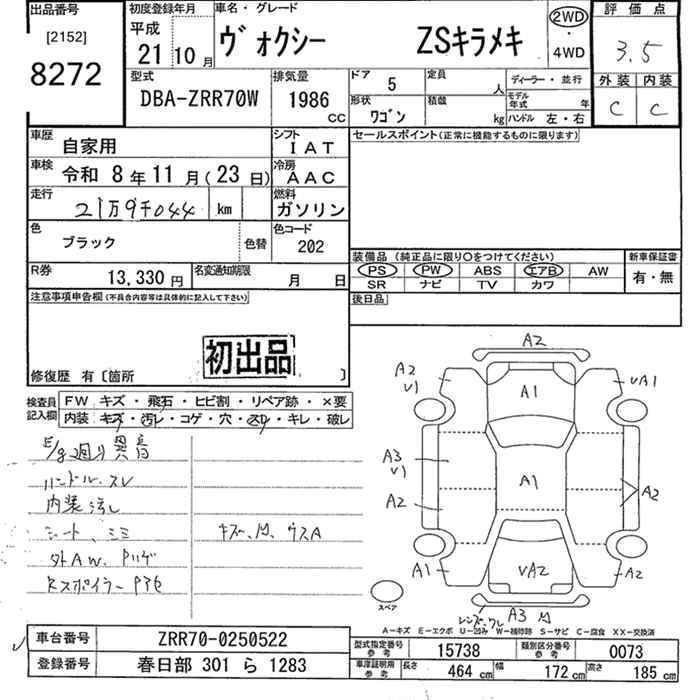 出品番号
[2152]
8272
初度登録年月
平成
21 10 月
車名・グレード
ヴォクシー ZSキラメキ
2WD
・
4WD
評価点
3.5
外装 内装
C C
型式
DBA-ZRR70W
排気量
1986
CC
ドア 5
定員 人
形状 ワゴン
積載 kg
ディーラー・並行
モデル年式 年
ハンドル 左・右
車歴 自家用
シフト IAT
車検 令和 8 年 11 月(23 日)
冷房 AAC
走行 21万9千044 km
燃料 ガソリン
色 ブラック 色替
色コード 202
R券 13,330 円
名変通知期限 月 日
セールスポイント(正常に機能するものに限ります)
装備品 (純正品に限り○をつけてください)
PS PW ABS エアB AW
SR ナビ TV カワ
新車保証書
有・無
後日品
注意事項申告欄(不具合内容等は具体的に記入して下さい)
初出品
修復歴 有〔箇所 〕
検査員記入欄
FW キズ・飛石・ヒビ割・リペア跡・×要
内装 キズ・汚レ・コゲ・穴・スリ・キレ・破レ
E/g廻り異音
ハンドル、スレ
内装汚し
シート、シミ
キズ、凹、ウスA
外AW、Pハゲ
Rスポイラー
A2
A2
V1
A1
UA1
A3
V1
A1
A2
A2
A1
VA2
A2
A3 凹
レンズ、ワレ
スペア
A−キズ E−エクボ U−凹み W−補修跡 S−サビ C−腐食 XX−交換済
車台番号 ZRR70-0250522
登録番号 春日部 301 ら 1283
型式指定番号 参考 15738
類別区分番号 参考 0073
車庫証明用 参考 長さ 464 cm 幅 172 cm 高さ 185 cm